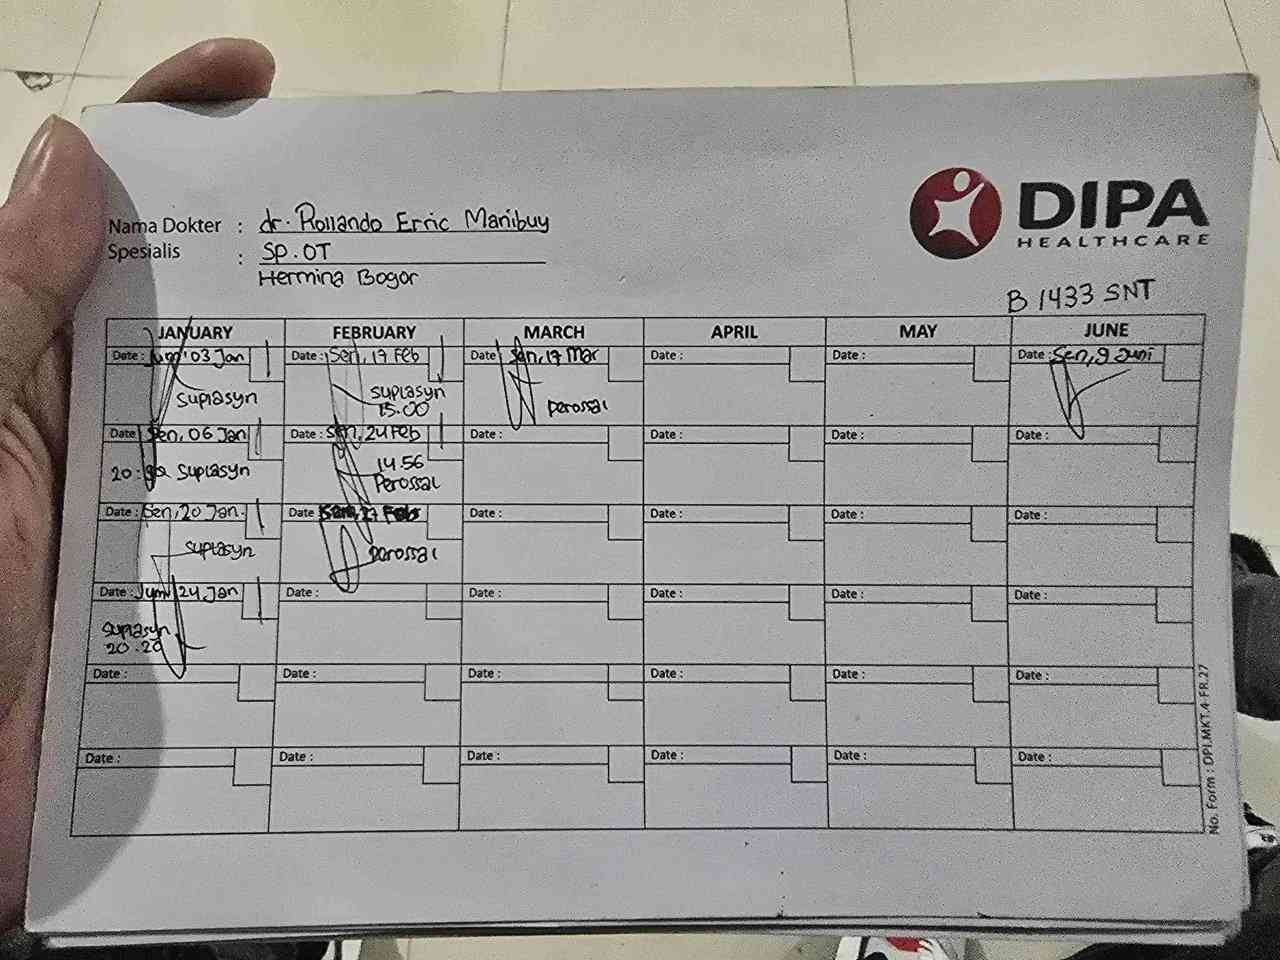 DIPA
HEALTHCARE
Nama Dokter : dr. Rollando Erric Manibuy
Spesialis : SP.OT
Hermina Bogor
B 1433 SNT
JANUARY FEBRUARY MARCH APRIL MAY JUNE
Date : Jum' 03 Jan Date : Sen, 17 Feb Date Sen, 17 Mar Date : Date : Date : Sen, 9 Juni
Suplasyn Suplasyn Perossal
15.00
Date Sen, 06 Jan Date : Sen, 24 Feb Date : Date : Date : Date :
20: Suplasyn 14.56
Perossal
Date : Sen, 20 Jan. Date 27 Feb Date : Date : Date : Date :
Suplasyn Perossal
Date : Jum 24 Jan Date : Date : Date : Date : Date :
Suplasyn
20.20
Date : Date : Date : Date : Date : Date :
Date : Date : Date : Date : Date : Date :
No. Form : DPI.MKT.4-FR.27